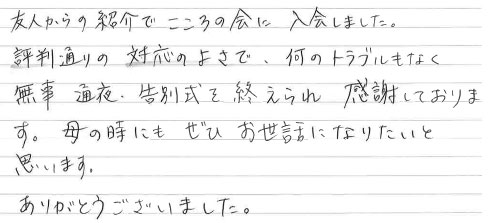 友人からの紹介で こころの会に 入会しました。
評判通りの 対応のよさで、何のトラブルもなく
無事 通夜・告別式を 終えられ 感謝しておりま
す。 母の時にも ぜひ お世話になりたいと
思います。
ありがとうございました。